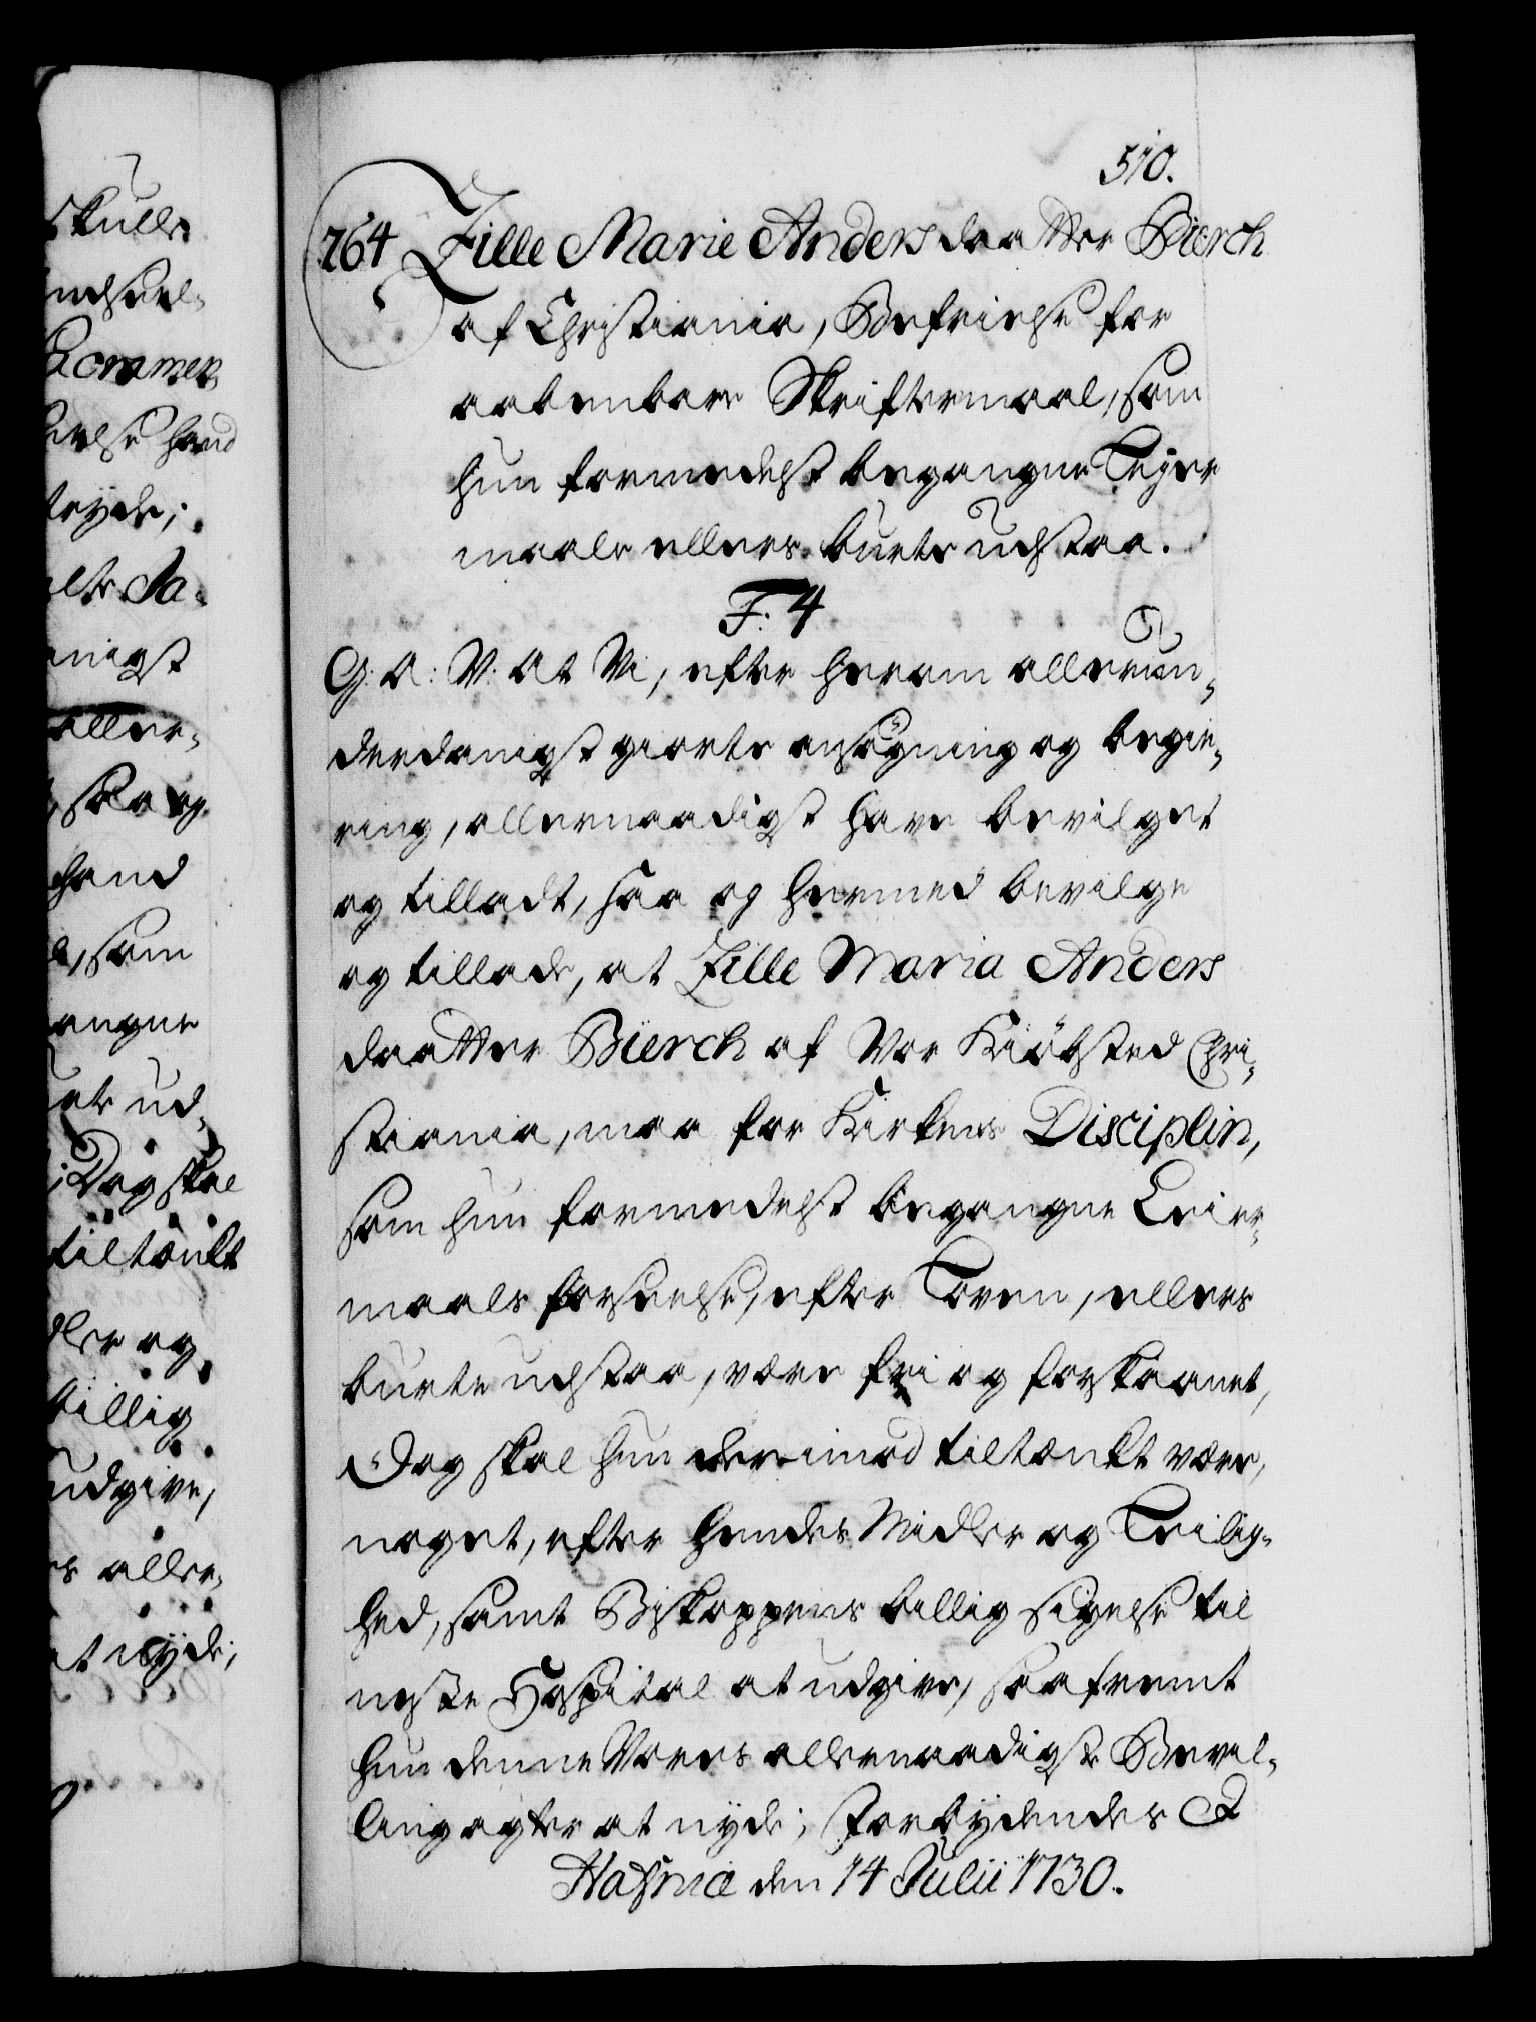 510.
764 Zille Marie Anders daatter Bierch
af Christiania, Befrielse for
aabenbare Skriftermaal, som
hun formedelst begangne Leyer
maals ellers burte udstaa.
F. 4
G. A: V. At Vi, efter herom allerun-
derdanigst giorte ansøgning og begie-
ring, allernaadigst have bevilget
og tilladt, saa og hermed bevilge
og tillade, at Zille Maria Anders
daatter Bierch af Vor Kiøbsted Chri-
stiania, maa for Kirkens Disciplin,
som hun formedelst begangne Leier-
maals forseelse, efter Loven, ellers
burte udstaa, være fri og forskaanet,
Dog skal hun derimod tiltænkt være,
noget, efter hendes Midler og Leilig-
hed, samt Biskoppens billig sigelse til
neste Hospital at udgive, saafremt
hun denne Vores allernaadigste Bevil-
ling agter at nyde; Forbydendes &
Hafniæ den 14 Julii 1730.
skulle
Sa-
aller-
og
hand
som
angne
ud-
Dog skal
tiltænkt
og
tillig
udgive,
aller-
at nyde;